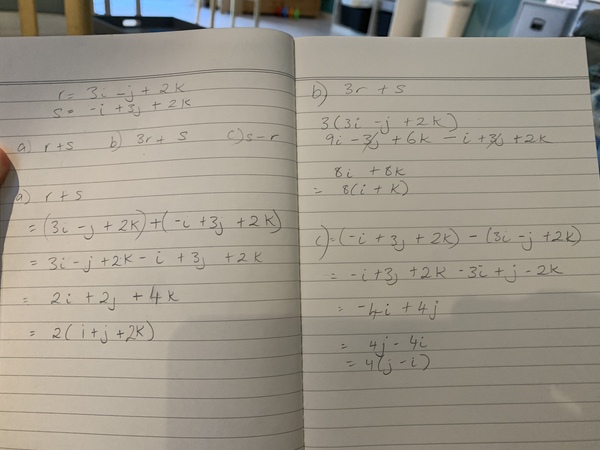 r = 3i - j + 2k
s = -i + 3j + 2k
a) r+s b) 3r + s c) s-r
a) r+s
= (3i - j + 2k) + (-i + 3j + 2k)
= 3i - j + 2k - i + 3j + 2k
= 2i + 2j + 4k
= 2(i + j + 2k)
b) 3r + s
3(3i - j + 2k)
9i - 3j + 6k - i + 3j + 2k
8i + 8k
= 8(i + k)
c) = (-i + 3j + 2k) - (3i - j + 2k)
= -i + 3j + 2k - 3i + j - 2k
= -4i + 4j
= 4j - 4i
= 4(j - i)